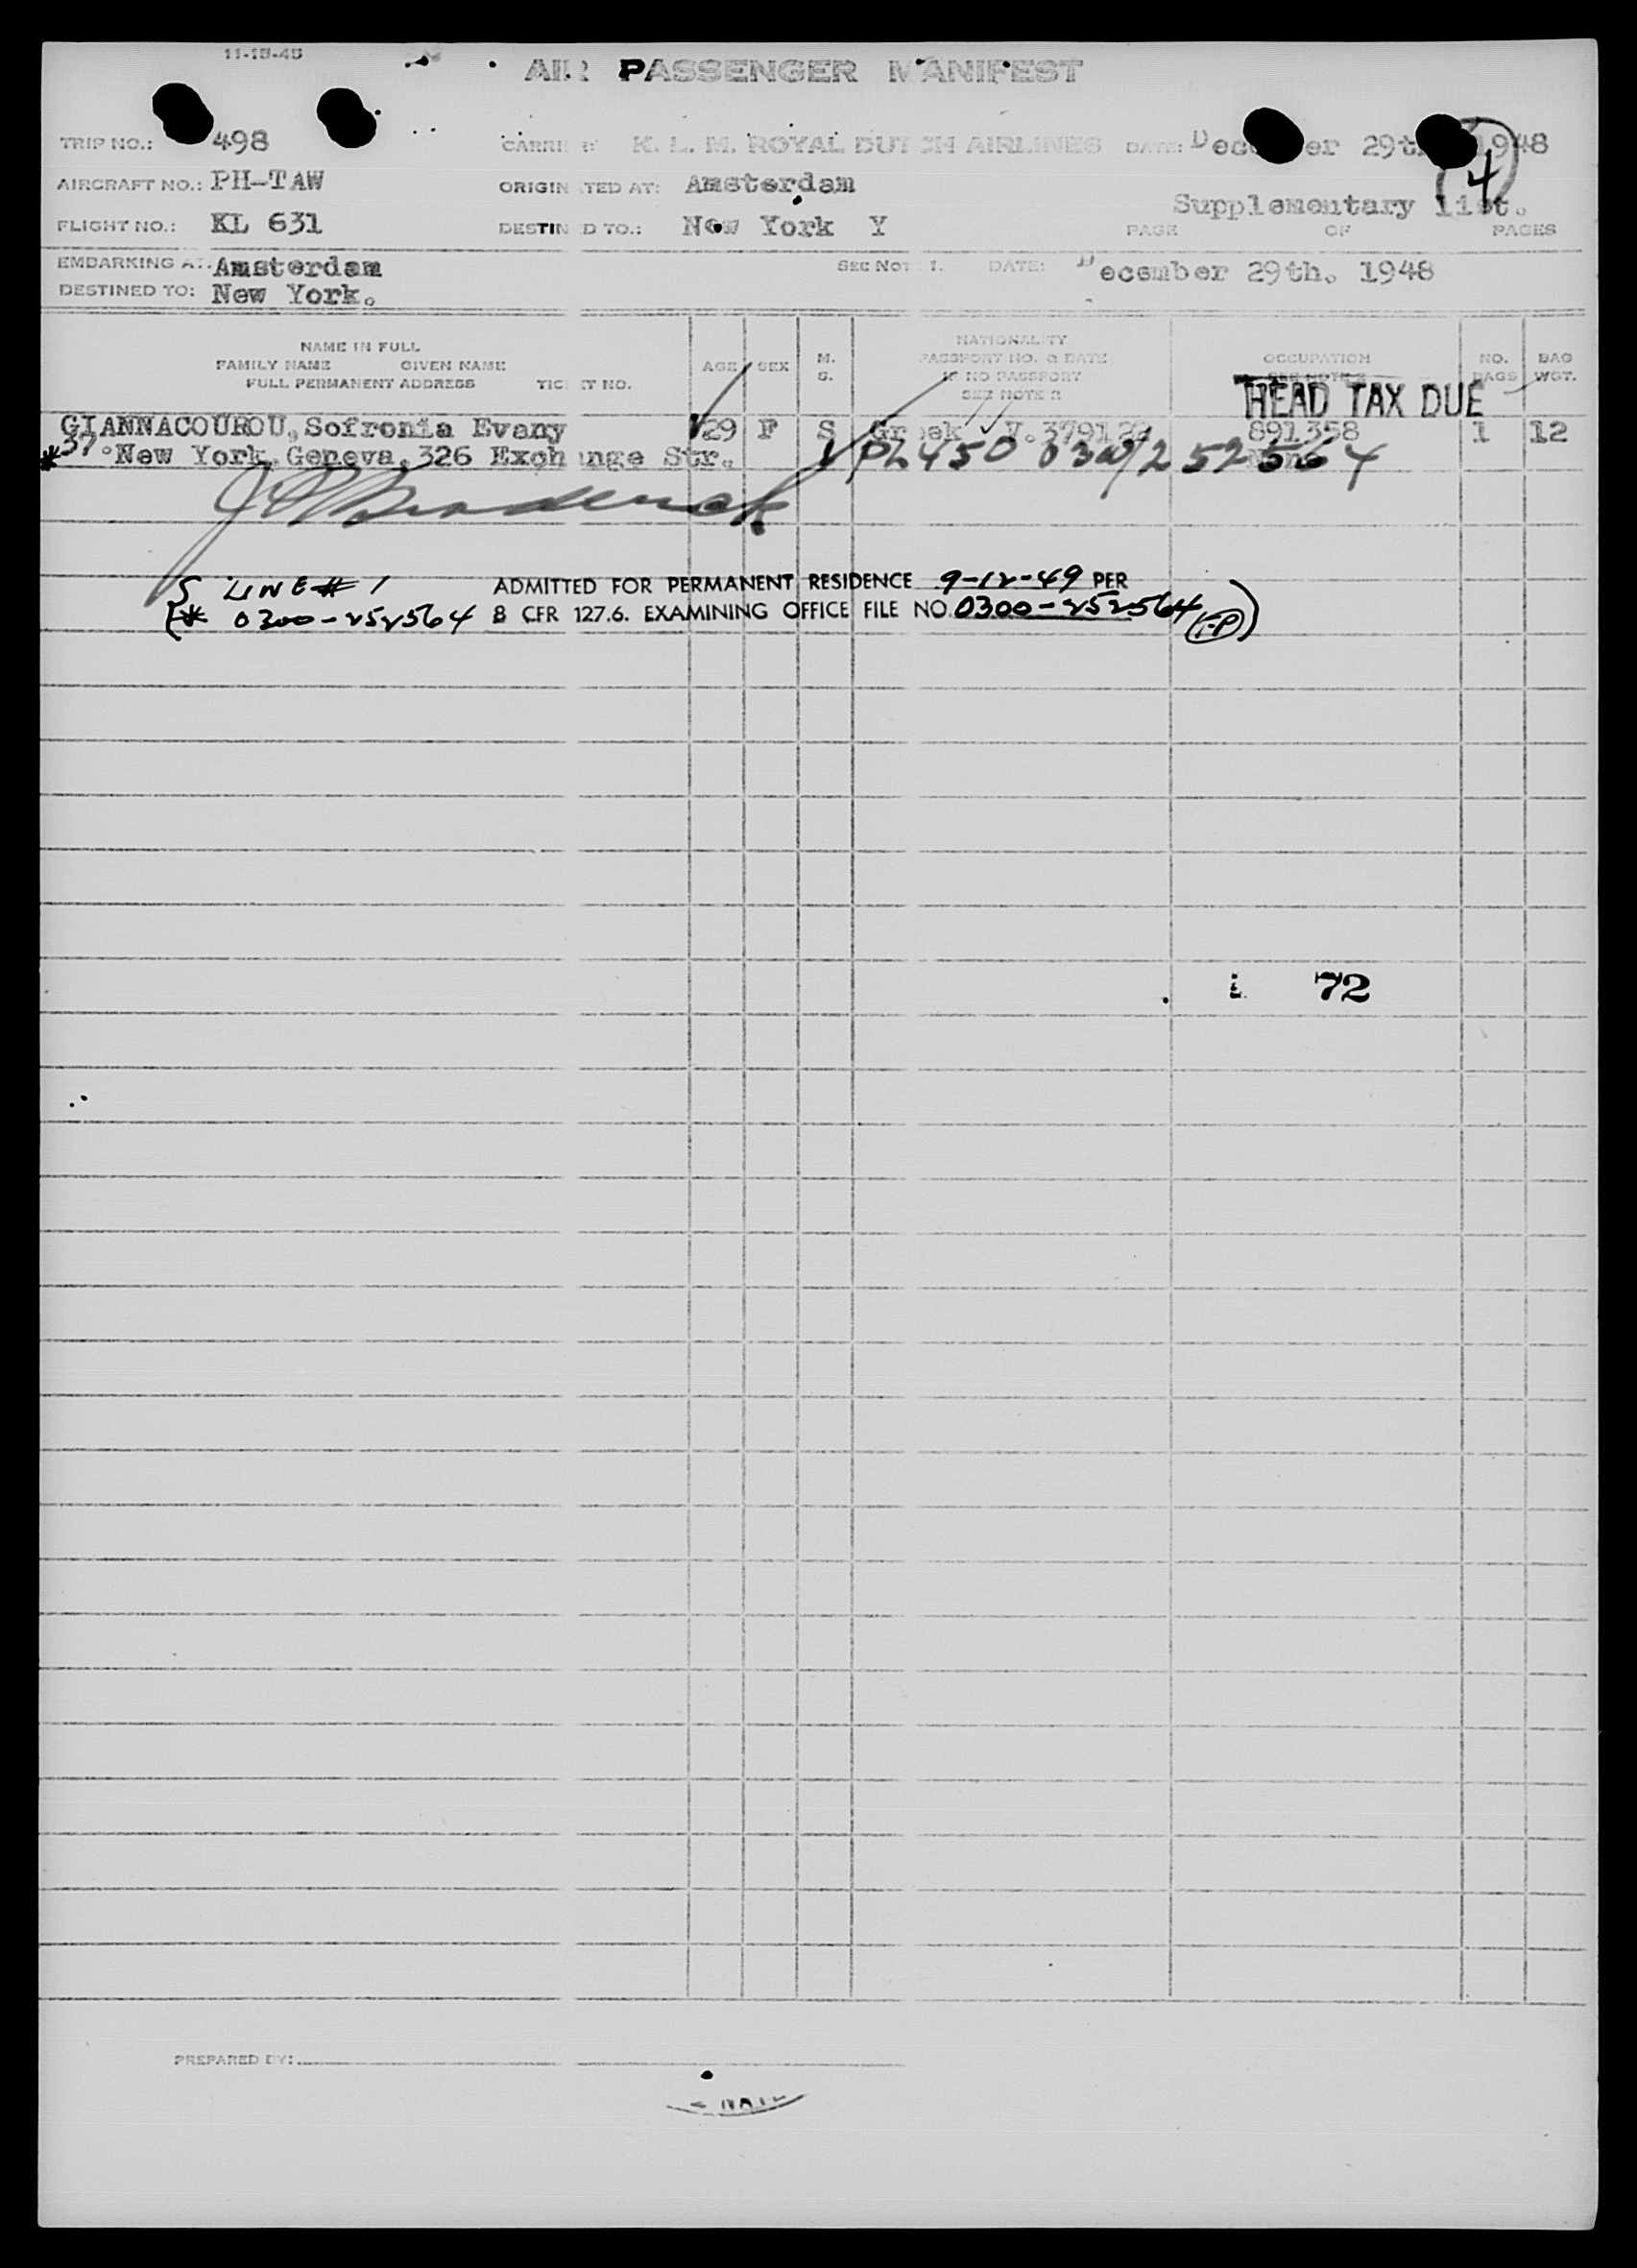 11-15-45
AIR PASSENGER MANIFEST
TRIP NO.: 498 CARRIER: K. L. M. ROYAL DUTCH AIRLINES DATE: December 29th 1948
4
AIRCRAFT NO.: PH-TAW ORIGINATED AT: Amsterdam
Supplementary list.
FLIGHT NO.: KL 631 DESTINED TO.: New York Y PAGE OF PAGES
EMBARKING AT: Amsterdam SEE NOTE 1. DATE: December 29th. 1948
DESTINED TO: New York.
NAME IN FULL
FAMILY NAME GIVEN NAME
FULL PERMANENT ADDRESS TICKET NO.
AGE SEX M. S.
NATIONALITY
PASSPORT NO. & DATE
IF NO PASSPORT
SEE NOTE 2
OCCUPATION
SEE NOTE 2
NO. BAGS BAG WGT.
HEAD TAX DUE
GIANNACOUROU, Sofronia Evany 29 F S Greek V. 891358 1 12
*37 New York, Geneva, 326 Exchange Str. 252564
LINE # 1 ADMITTED FOR PERMANENT RESIDENCE 9-12-49 PER
* 0300-252564 8 CFR 127.6. EXAMINING OFFICE FILE NO. 0300-252564
72
PREPARED BY: